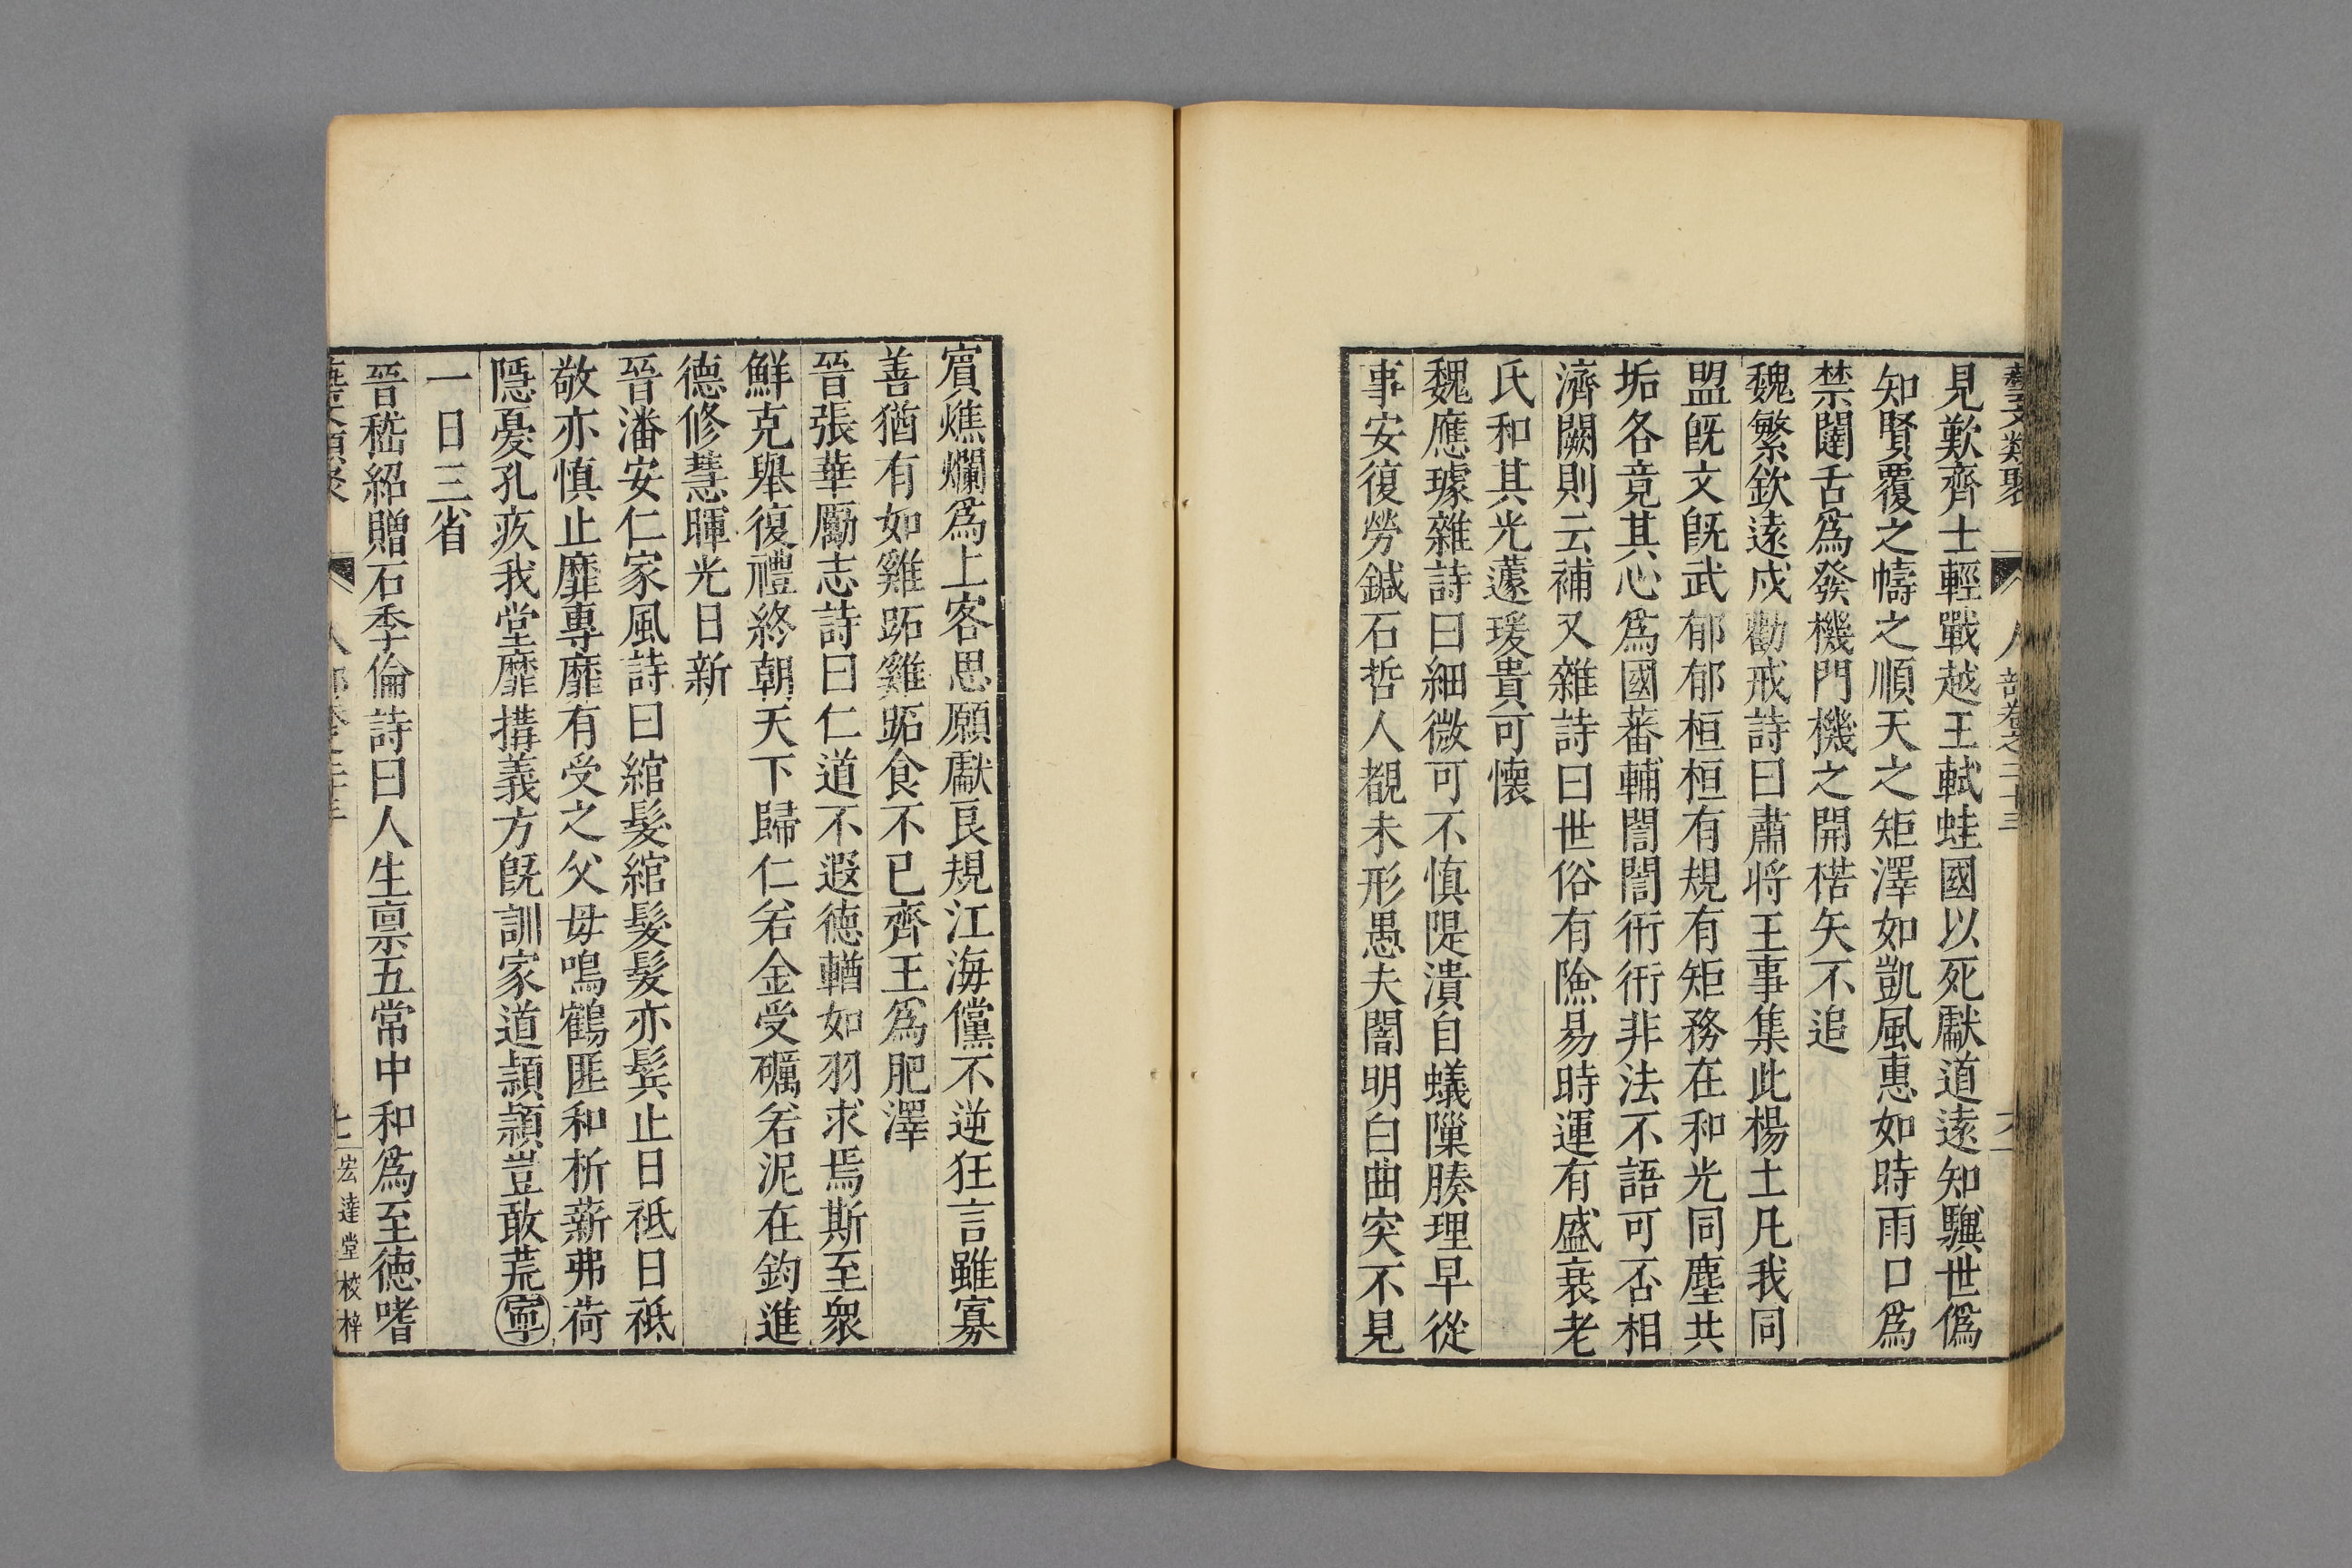 藝文類聚 人部卷之二十三 六
見歎齊士輕戰越王軾蛙國以死獻道遠知驥世僞
知賢覆之幬之順天之矩澤如凱風惠如時雨口爲
禁闥舌爲發機門機之開楛矢不追
魏繁欽遠戍勸戒詩曰肅將王事集此楊土凡我同
盟旣文旣武郁郁桓桓有規有矩務在和光同塵共
垢各竟其心爲國蕃輔誾誾衎衎非法不語可否相
濟闕則云補又雜詩曰世俗有險易時運有盛衰老
氏和其光蘧瑗貴可懷
魏應璩雜詩曰細微可不慎隄潰自蟻隟腠理早從
事安復勞鍼石哲人覩未形愚夫闇明白曲突不見
賔燋爛爲上客思願獻良規江海儻不逆狂言雖寡
善猶有如雞跖雞跖食不已齊王爲肥澤
晉張華勵志詩曰仁道不遐德輶如羽求焉斯至衆
鮮克舉復禮終朝天下歸仁若金受礪若泥在鈞進
德修慧暉光日新
晉潘安仁家風詩曰綰髮綰髮髮亦鬓止日祗日祗
敬亦慎止靡專靡有受之父毋鳴鶴匪和析薪弗荷
隱憂孔疚我堂靡搆義方旣訓家道頴頴豈敢荒寧
一日三省
晉嵇紹贈石季倫詩曰人生禀五常中和爲至德嗜
藝文類聚 人部卷之二十三 七 宏達堂校梓